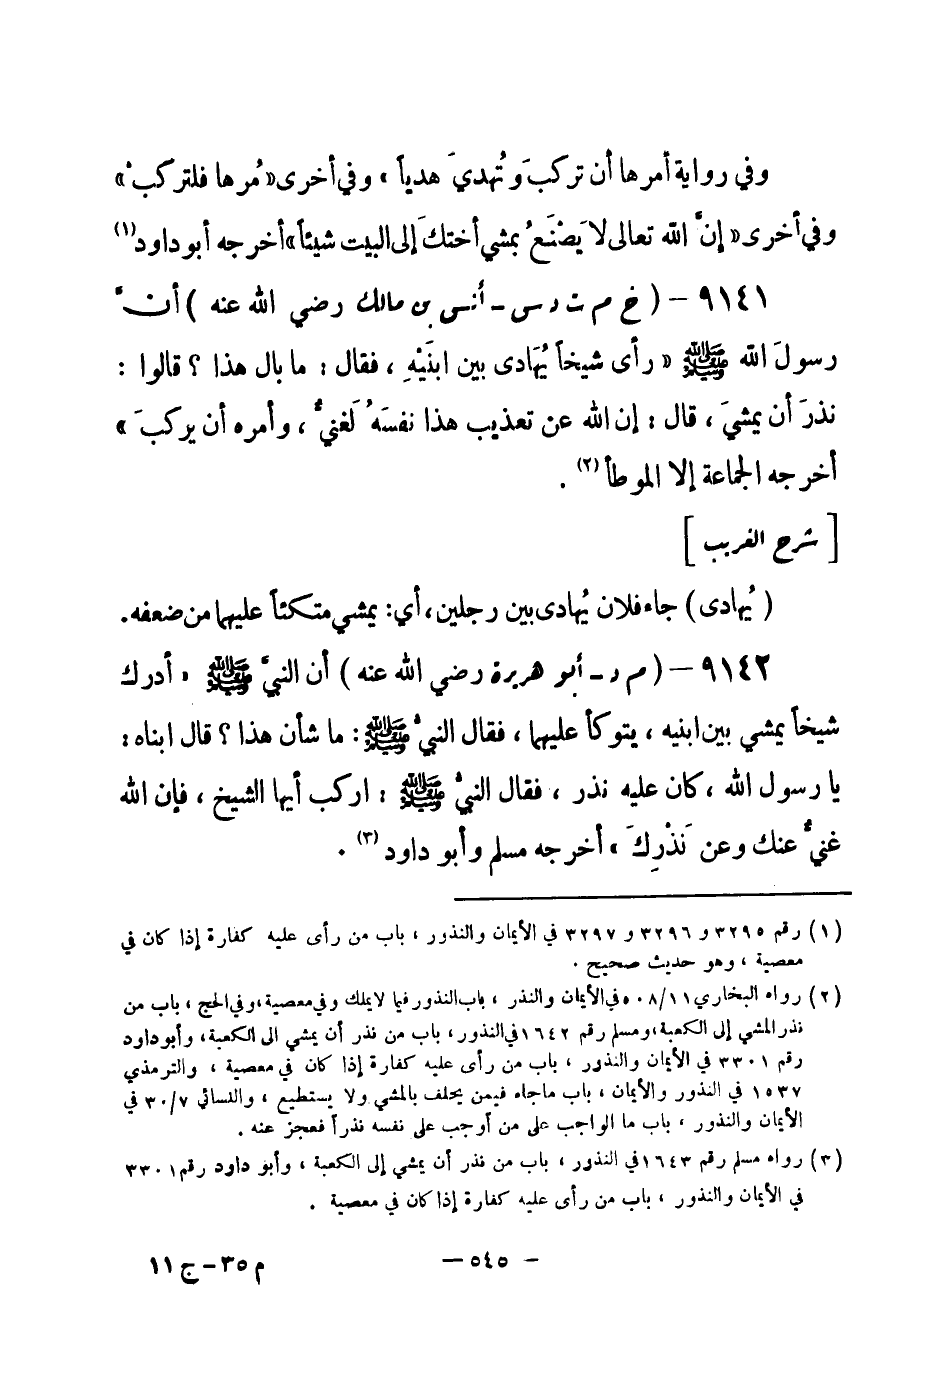 وفي رواية أمرها أن تركبَ وتُهديَ هدياً » وفي أخرى « مُرها فلتركبْ »
وفي أخرى « إنَّ الله تعالى لا يَصْنَعُ بمشي أختكَ إلى البيت شيئاً » أخرجه أبو داود (١)
٩١٤١ – ( خ م ت د س - أنس بن مالك رضي الله عنه ) أنَّ
رسولَ الله ﷺ « رأى شيخاً يُهَادى بين ابنَيْهِ ، فقال : ما بال هذا ؟ قالوا :
نذرَ أن يمشيَ ، قال : إن الله عن تعذيب هذا نفسَهُ لَغنيٌّ ، وأمره أن يركبَ »
أخرجه الجماعة إلا الموطأ (٢) .
[ شرح الغريب ]
( يُهادى ) جاء فلان يُهادى بين رجلين ، أي : يمشي متكئاً عليهما من ضعفه .
٩١٤٢ – ( م د - أبو هريرة رضي الله عنه ) أن النبيَّ ﷺ « أدرك
شيخاً يمشي بين ابنيه ، يتوكأ عليهما ، فقال النبيُّ ﷺ : ما شأن هذا ؟ قال ابناه :
يا رسول الله ، كان عليه نذر ، فقال النبيُّ ﷺ : اركب أيها الشيخ ، فإن الله
غنيٌّ عنك وعن نَذْرِكَ » أخرجه مسلم وأبو داود (٣) .
(١) رقم ٣٢٩٥ و ٣٢٩٦ و ٣٢٩٧ في الأيمان والنذور ، باب من رأى عليه كفارة إذا كان في
معصية ، وهو حديث صحيح .
(٢) رواه البخاري ٥٠٨/١١ في الأيمان والنذر ، باب النذور فيما لا يملك وفي معصية ، وفي الحج ، باب من
نذر المشي إلى الكعبة ، ومسلم رقم ١٦٤٢ في النذور ، باب من نذر أن يمشي الى الكعبة ، وأبو داود
رقم ٣٣٠١ في الأيمان والنذور ، باب من رأى عليه كفارة إذا كان في معصية ، والترمذي
١٥٣٧ في النذور والأيمان ، باب ماجاء فيمن يحلف بالمشي ولا يستطيع ، والنسائي ٣٠/٧ في
الأيمان والنذور ، باب ما الواجب على من أوجب على نفسه نذراً فعجز عنه .
(٣) رواه مسلم رقم ١٦٤٣ في النذور ، باب من نذر أن يمشي إلى الكعبة ، وأبو داود رقم ٣٣٠١
في الأيمان والنذور ، باب من رأى عليه كفارة إذا كان في معصية .
– ٥٤٥ –
م ٣٥ – ج ١١